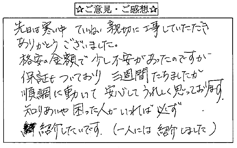 ☆ご意見・ご感想☆
先日は寒中 ていねい親切に工事していただき
ありがとうございました。
格安の金額で少し不安があったのですが
保証もついており 3週間たちましたが
順調に動いて 安心してうれしく思っております。
知りあいや困った人がいれば 必ず
紹介したいです。(一人には紹介しました)